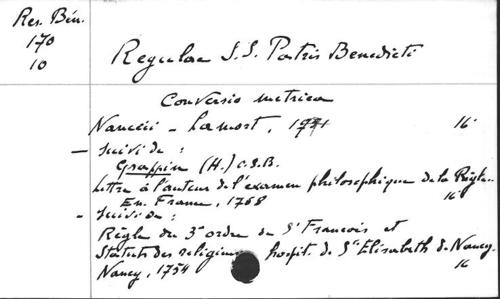 Res. Bén.
170
10
Regulae S.S. Patris Benedicti
Conversio metrica
Nanceii - Lamort, 16°
- suivi de :
Grappin (H.) O.S.B.
Lettre à l'auteur de l'examen philosophique de la Règle..
En France, 1768 16°
- suivi de :
Règle du 3e ordre de St François et
Statuts des religieuses hospit. de Ste Elisabeth de Nancy.
Nancy, 1754 16